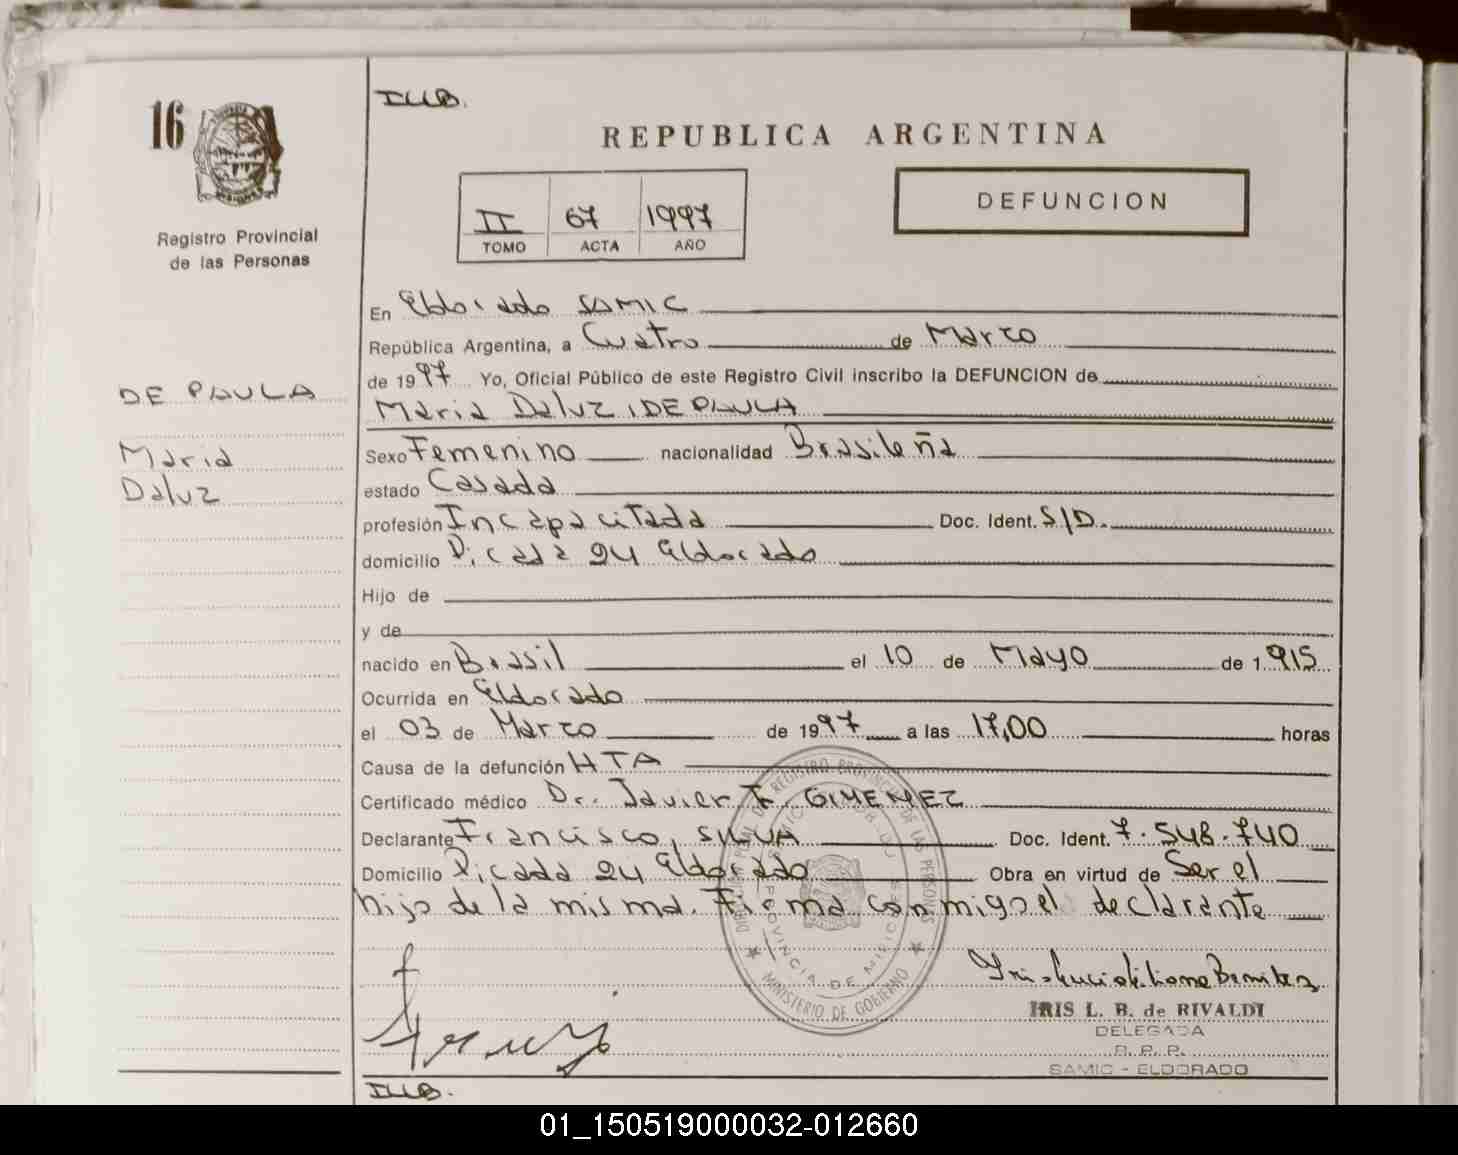 ILLB.
16
REPUBLICA ARGENTINA
II 67 1997
TOMO ACTA AÑO
DEFUNCION
Registro Provincial
de las Personas
DE PAULA
Maria
Daluz
En Eldorado SAMIC
República Argentina, a Cuatro de Marzo
de 1997 Yo, Oficial Público de este Registro Civil inscribo la DEFUNCION de
Maria Daluz, DE PAULA
Sexo Femenino nacionalidad Brasileña
estado Casada
profesión Incapacitada Doc. Ident. S/D.
domicilio Picada 24 Eldorado
Hijo de
y de
nacido en Brasil el 10 de Mayo de 1.915
Ocurrida en Eldorado
el 03 de Marzo de 1997 a las 17,00 horas
Causa de la defunción HTA
Certificado médico Dr. Javier F. GIMENEZ
Declarante Francisco, SILVA Doc. Ident. 7.548.740
Domicilio Picada 24 Eldorado Obra en virtud de Ser el
hijo de la misma. Firma conmigo el declarante
REGISTRO PROVINCIAL DE LAS PERSONAS
PROVINCIA DE MISIONES
MINISTERIO DE GOBIERNO
IRIS L. B. de RIVALDI
DELEGADA
R. P. P.
SAMIC - ELDORADO
ILLB.
01_150519000032-012660